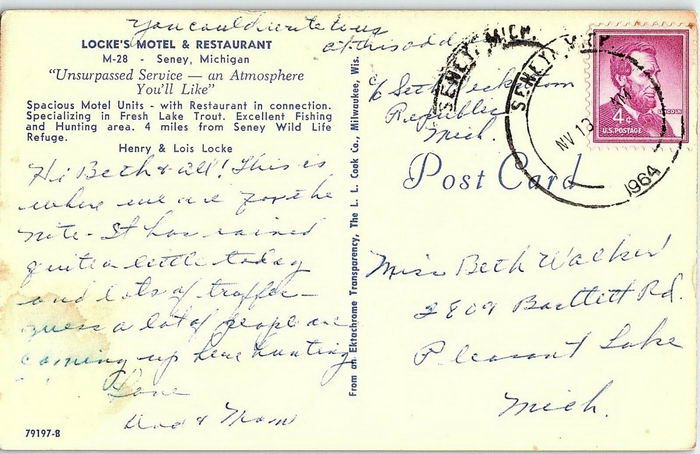 You could write to us
at this add
LOCKE'S MOTEL & RESTAURANT
M-28 - Seney, Michigan
"Unsurpassed Service — an Atmosphere
You'll Like"
Spacious Motel Units - with Restaurant in connection.
Specializing in Fresh Lake Trout. Excellent Fishing
and Hunting area. 4 miles from Seney Wild Life
Refuge.
Henry & Lois Locke
Hi Beth & all! This is
where we are for the
nite. It has rained
quite a little today
and lots of traffic—
guess a lot of people are
coming up here hunting
Love
Dad & Mom
79197-B
From an Ektachrome Transparency, The L. L. Cook Co., Milwaukee, Wis.
c/o Seth
Republic
Mich.
SENEY, MICH.
SENEY, MICH.
NV 13
1964
LINCOLN
4¢
U.S. POSTAGE
Post Card
Miss Beth Walker
2809 Bartlett Rd.
Pleasant Lake
Mich.